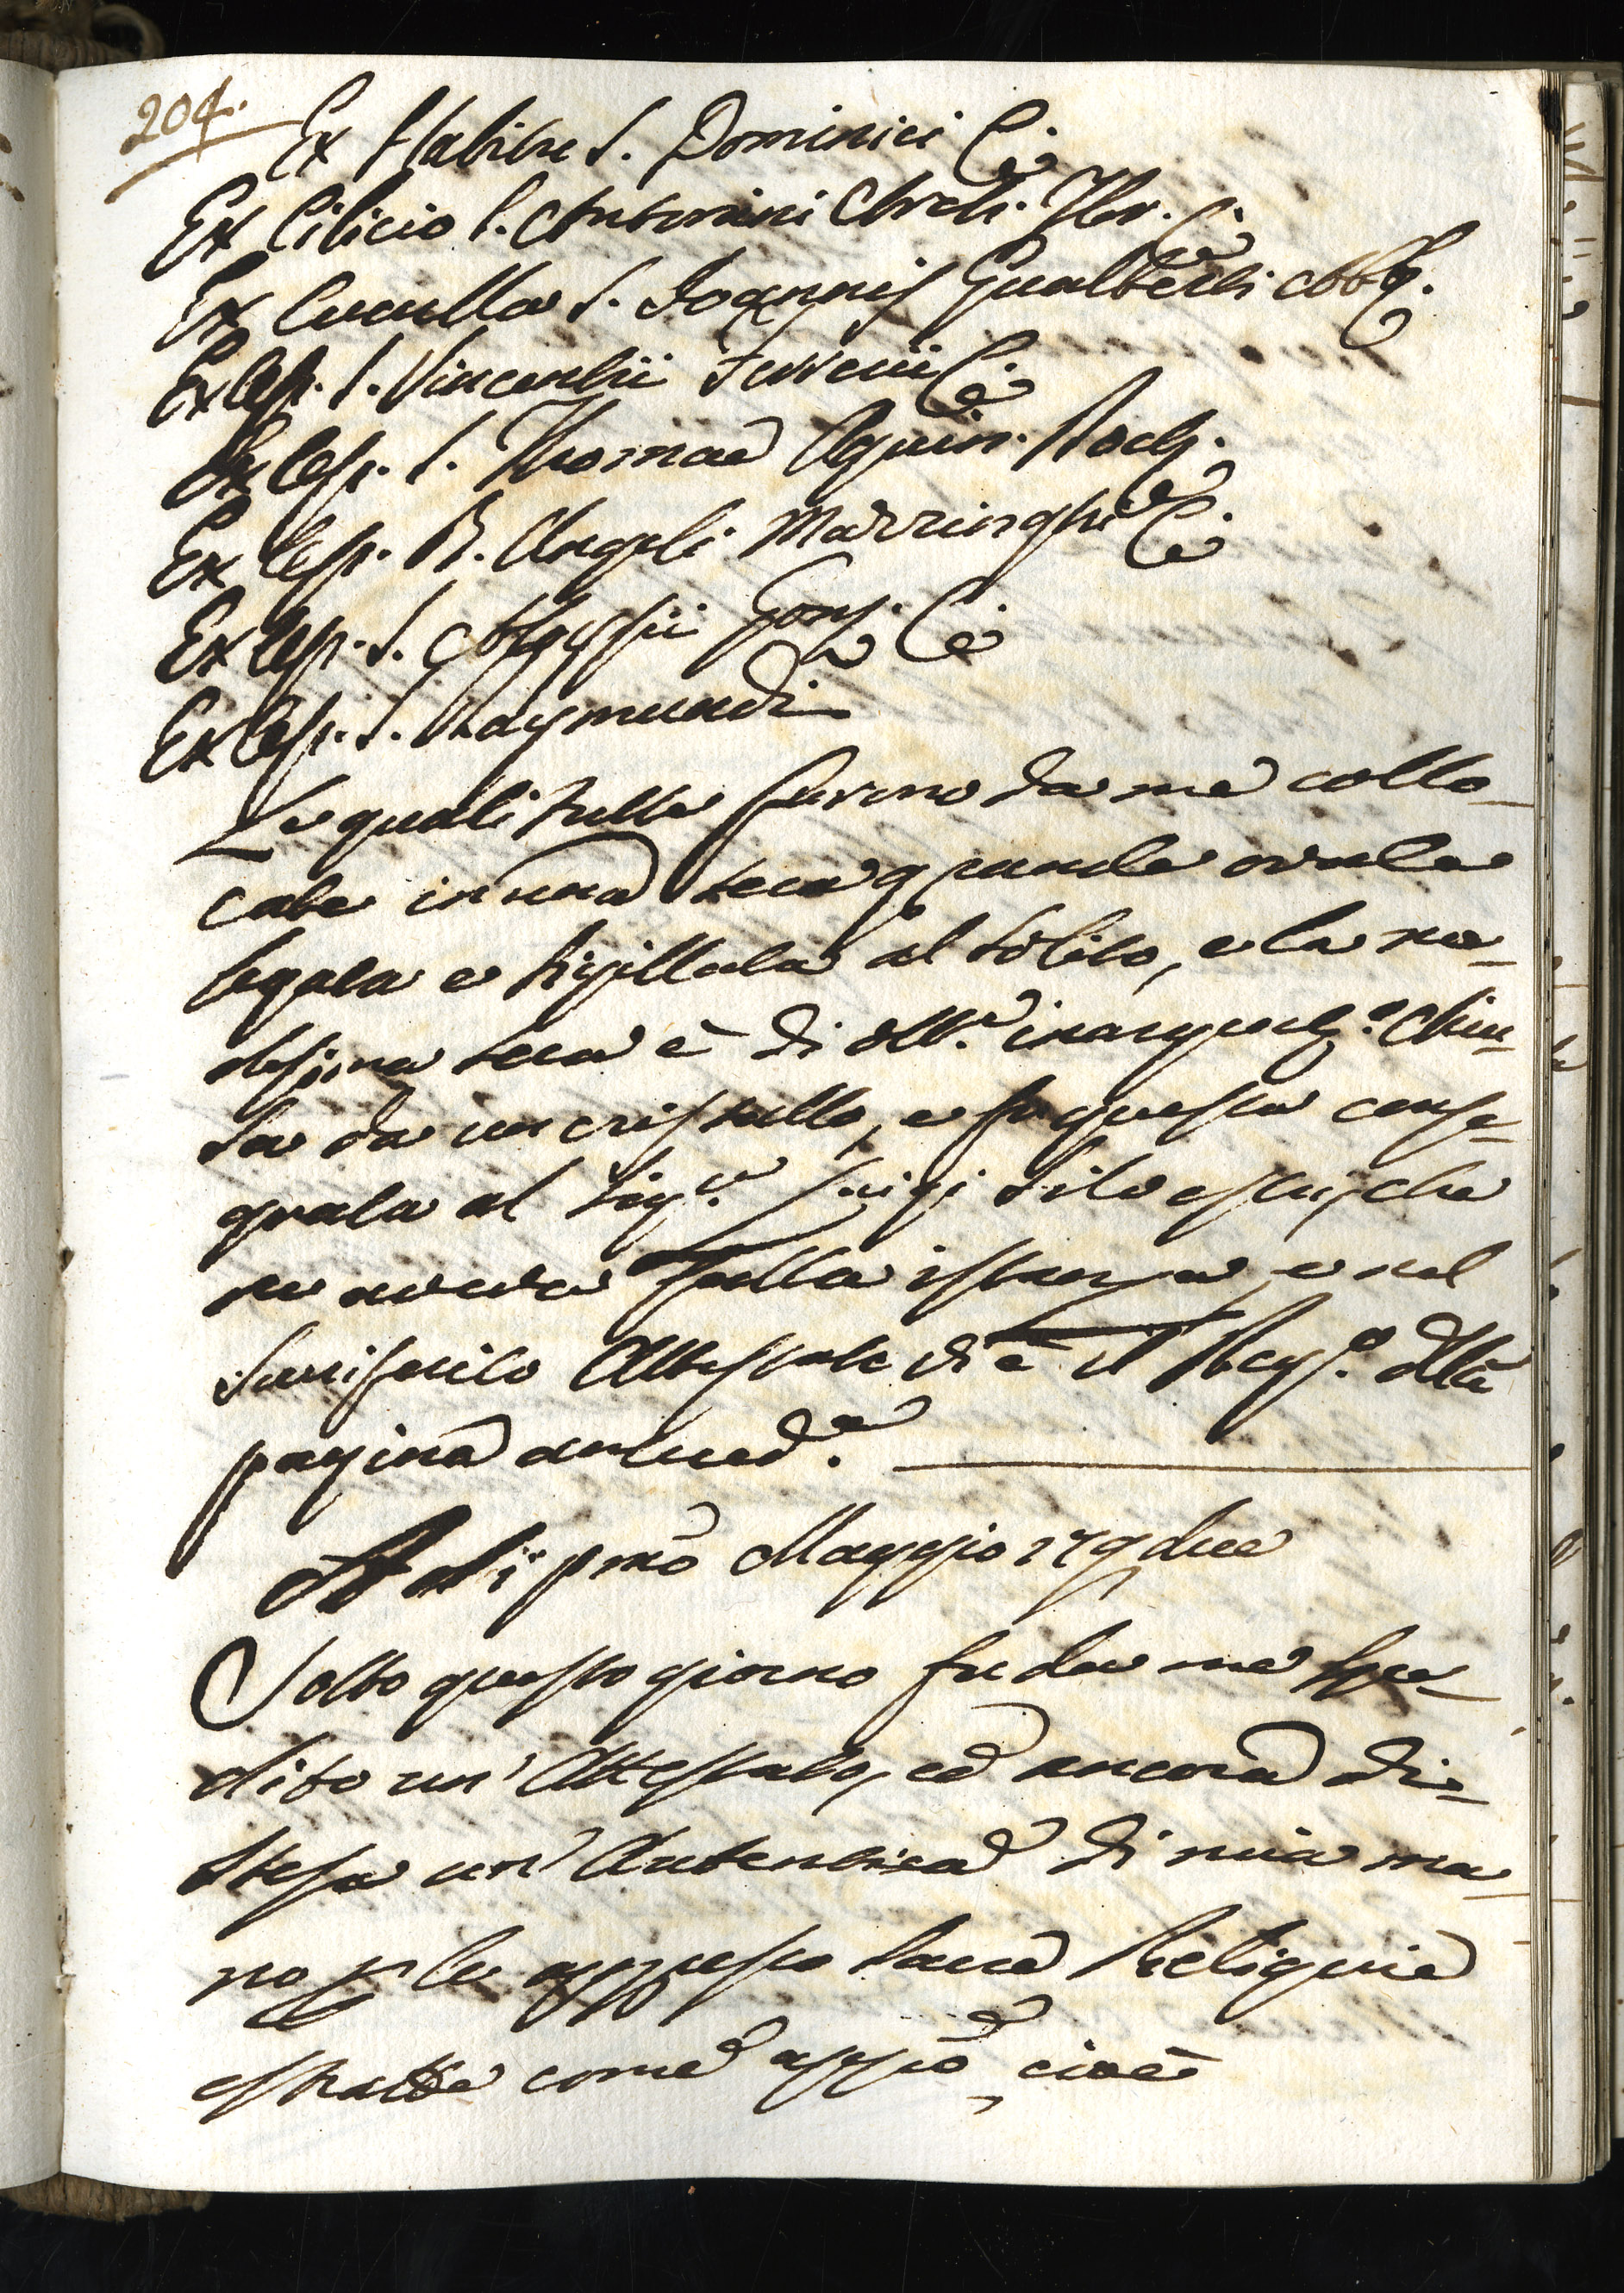 204.
Ex Habitu S. Dominici C.
Ex Cilicio S. Antonini Arch. Flor. C.
Ex Cuculla S. Joannis Gualberti Abb.
Ex Caps. S. Vincentii Ferrerii C.
Ex Caps. S. Thomae Aquin. Doct.
Ex Caps. B. Angeli Mazzinghi C.
Ex Caps. S. Aloysii Gonz. C.
Ex Caps. S. Raymundi
Le quali tutte furno da me collo-
cate in una teca grande ovale
legata e sigillata al solito, e la me-
desima teca è di ott.e inargent.o chiu-
sa da un cristallo, e fu questa conse-
gnata al Sig.re Luigi che
ne aveva fatta istanza, e nel
surriferito Attestato di è il Reg.o della
pagina anteced.e
A di pmo Maggio 179due
Sotto questo giorno fu da me spe-
dito un' Attestato, ed ancora di-
stesa un' Autentica di mia ma-
no p le appresso sacre Reliquie
estratte come appo cioè